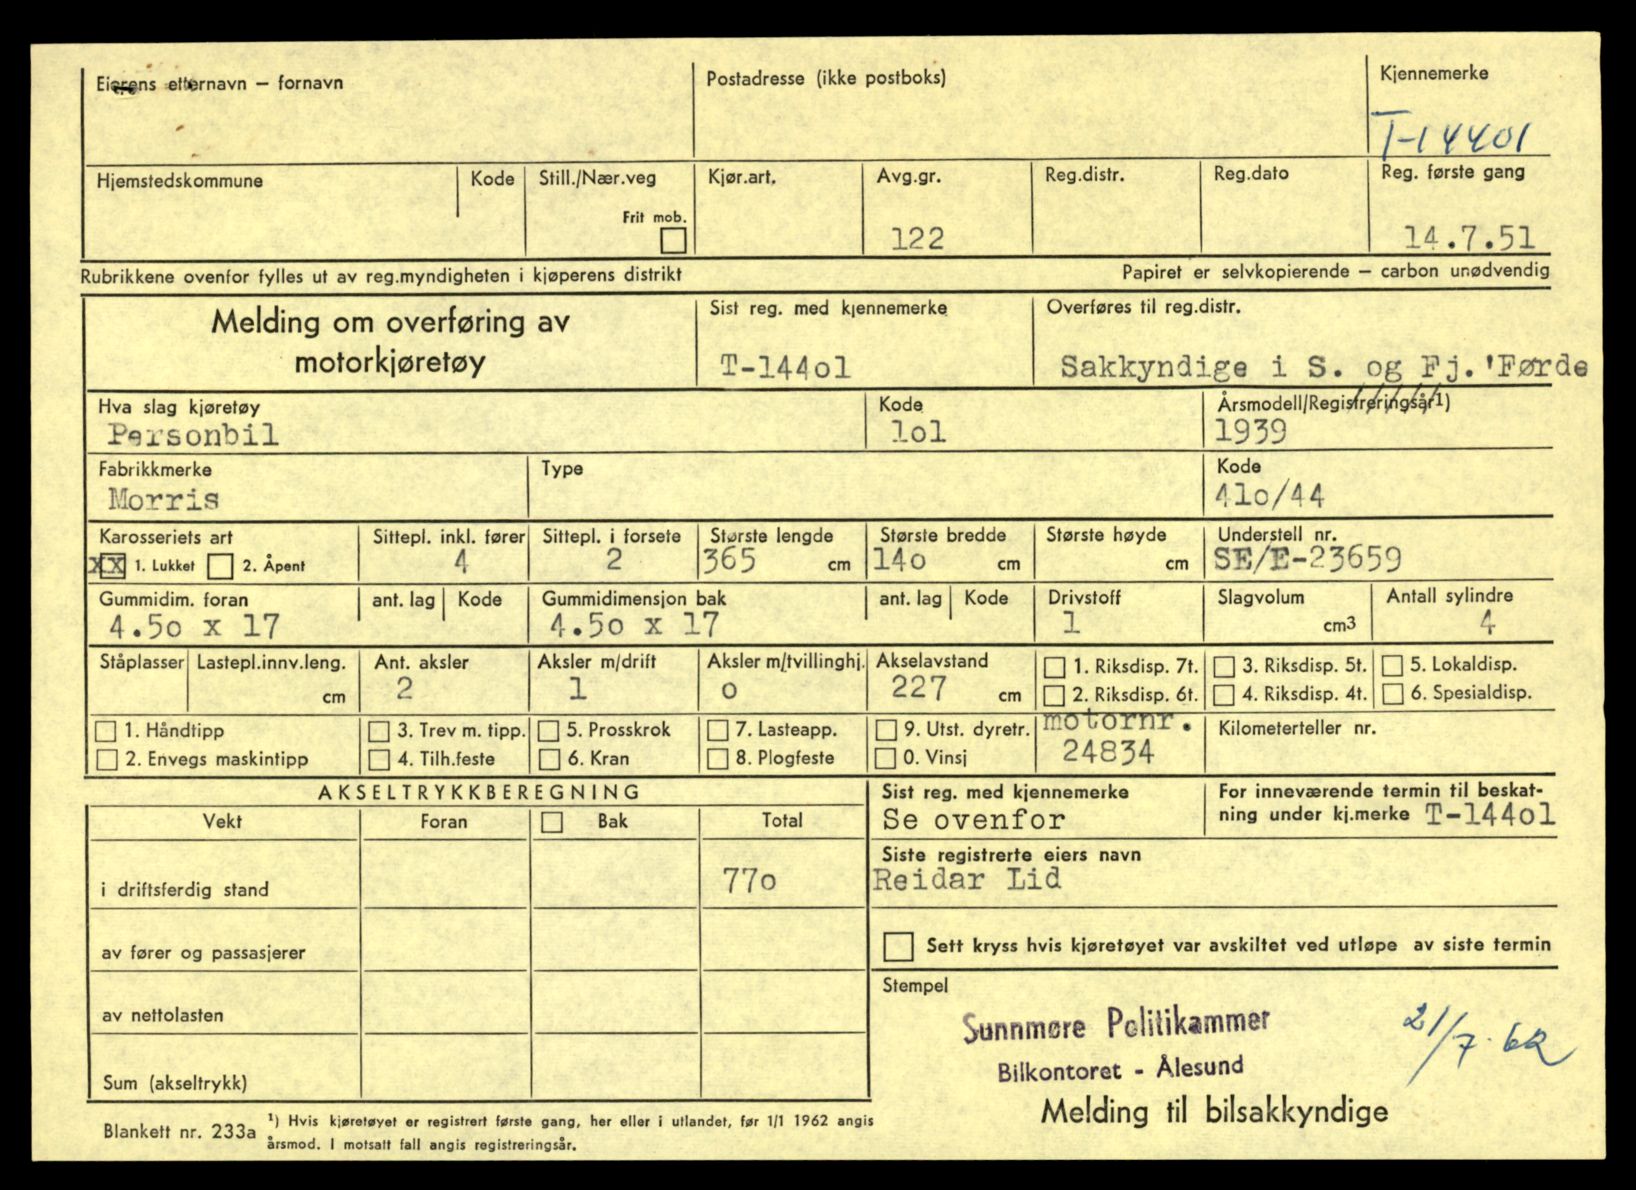 Eierens etternavn – fornavn
Postadresse (ikke postboks)
Kjennemerke
T-14401
Hjemstedskommune
Kode
Still./Nær.veg
Frit mob.
Kjør.art.
Avg.gr.
122
Reg.distr.
Reg.dato
Reg. første gang
14.7.51
Rubrikkene ovenfor fylles ut av reg.myndigheten i kjøperens distrikt
Papiret er selvkopierende – carbon unødvendig
Melding om overføring av
motorkjøretøy
Sist reg. med kjennemerke
T-144o1
Overføres til reg.distr.
Sakkyndige i S. og Fj.'Førde
Hva slag kjøretøy
Personbil
Kode
lol
Årsmodell/Registreringsår1)
1939
Fabrikkmerke
Morris
Type
Kode
41o/44
Karosseriets art
xx 1. Lukket 2. Åpent
Sittepl. inkl. fører
4
Sittepl. i forsete
2
Største lengde
365 cm
Største bredde
14o cm
Største høyde
cm
Understell nr.
SE/E-23659
Gummidim. foran
4.5o x 17
ant. lag
Kode
Gummidimensjon bak
4.5o x 17
ant. lag
Kode
Drivstoff
1
Slagvolum
cm3
Antall sylindre
4
Ståplasser
Lastepl.innv.leng.
cm
Ant. aksler
2
Aksler m/drift
1
Aksler m/tvillinghj.
o
Akselavstand
227 cm
1. Riksdisp. 7t.
2. Riksdisp. 6t.
3. Riksdisp. 5t.
4. Riksdisp. 4t.
5. Lokaldisp.
6. Spesialdisp.
1. Håndtipp
2. Envegs maskintipp
3. Trev m. tipp.
4. Tilh.feste
5. Prosskrok
6. Kran
7. Lasteapp.
8. Plogfeste
9. Utst. dyretr.
0. Vinsj
motornr.
24834
Kilometerteller nr.
AKSELTRYKKBEREGNING
Vekt
Foran
Bak
Total
i driftsferdig stand
77o
av fører og passasjerer
av nettolasten
Sum (akseltrykk)
Sist reg. med kjennemerke
Se ovenfor
For inneværende termin til beskat-
ning under kj.merke T-144o1
Siste registrerte eiers navn
Reidar Lid
Sett kryss hvis kjøretøyet var avskiltet ved utløpe av siste termin
Stempel
Sunnmøre Politikammer
Bilkontoret - Ålesund
21/7.62
Melding til bilsakkyndige
Blankett nr. 233a
1) Hvis kjøretøyet er registrert første gang, her eller i utlandet, før 1/1 1962 angis
årsmod. I motsatt fall angis registreringsår.